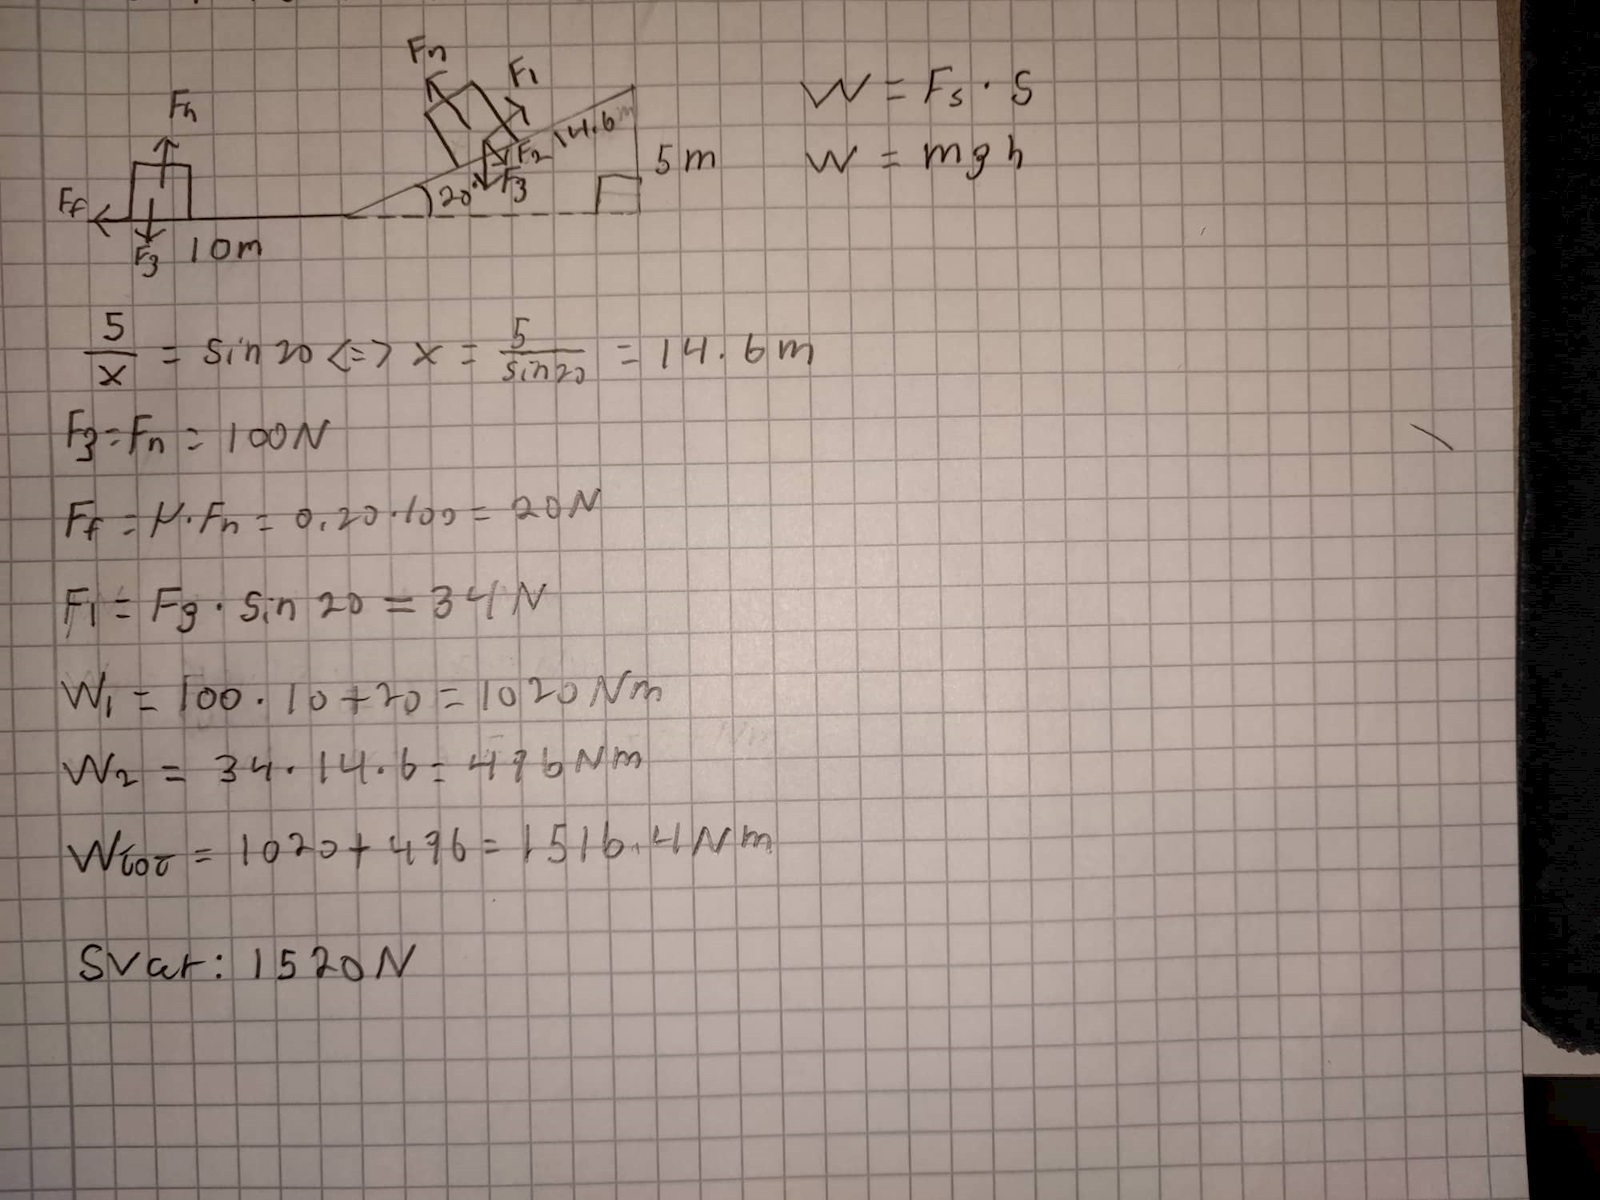 Fn
F1
Fn
14.6m
5m
F2
20°
Fg
Ff
Fg
10m
W = Fs · S
W = mgh
5/x = sin20 <=> x = 5/sin20 = 14.6m
Fg = Fn = 100N
Ff = μ·Fn = 0.20·100 = 20N
F1 = Fg · sin 20 = 34N
W1 = 100 · 10 + 20 = 1020 Nm
W2 = 34 · 14.6 = 496 Nm
Wtot = 1020 + 496 = 1516.4 Nm
Svar: 1520N